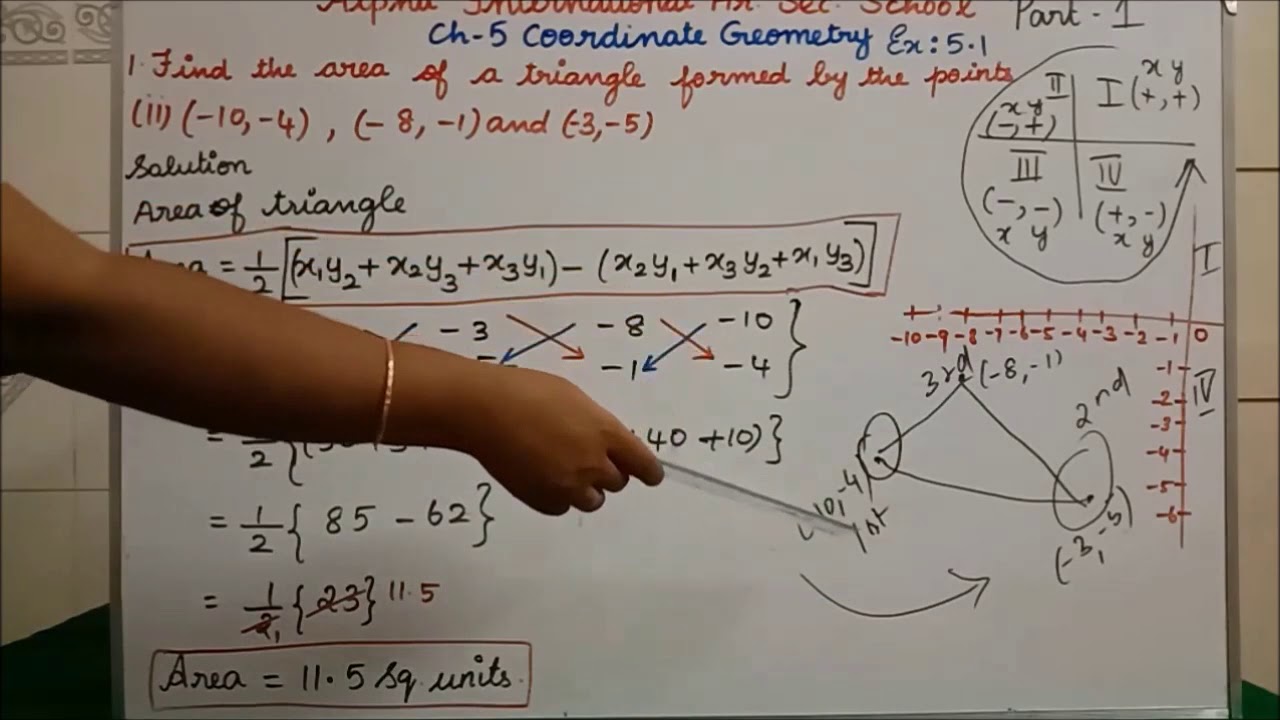 Alpha International Hr. Sec. School Part - 1
Ch-5 Coordinate Geometry Ex: 5.1
1. Find the area of a triangle formed by the points
(ii) (-10,-4) , (-8, -1) and (-3,-5)
Solution
Area of triangle
= 1/2 [(x₁y₂ + x₂y₃ + x₃y₁) - (x₂y₁ + x₃y₂ + x₁y₃)]
-3 -8 -10 }
-1 -4
2 { 40 +10) }
= 1/2 { 85 - 62 }
= 1/2 { 23 } 11.5
1
Area = 11.5 sq. units.
II
x y
(-,+)
I x y
(+,+)
III
(-,-)
x y
IV
(+,-)
x y
I
-10 -9 -8 -7 -6 -5 -4 -3 -2 -1 0
IV
-1
-2
-3
-4
-5
-6
3rd (-8,-1)
2nd
(-3,-5)
10,-4)
1st